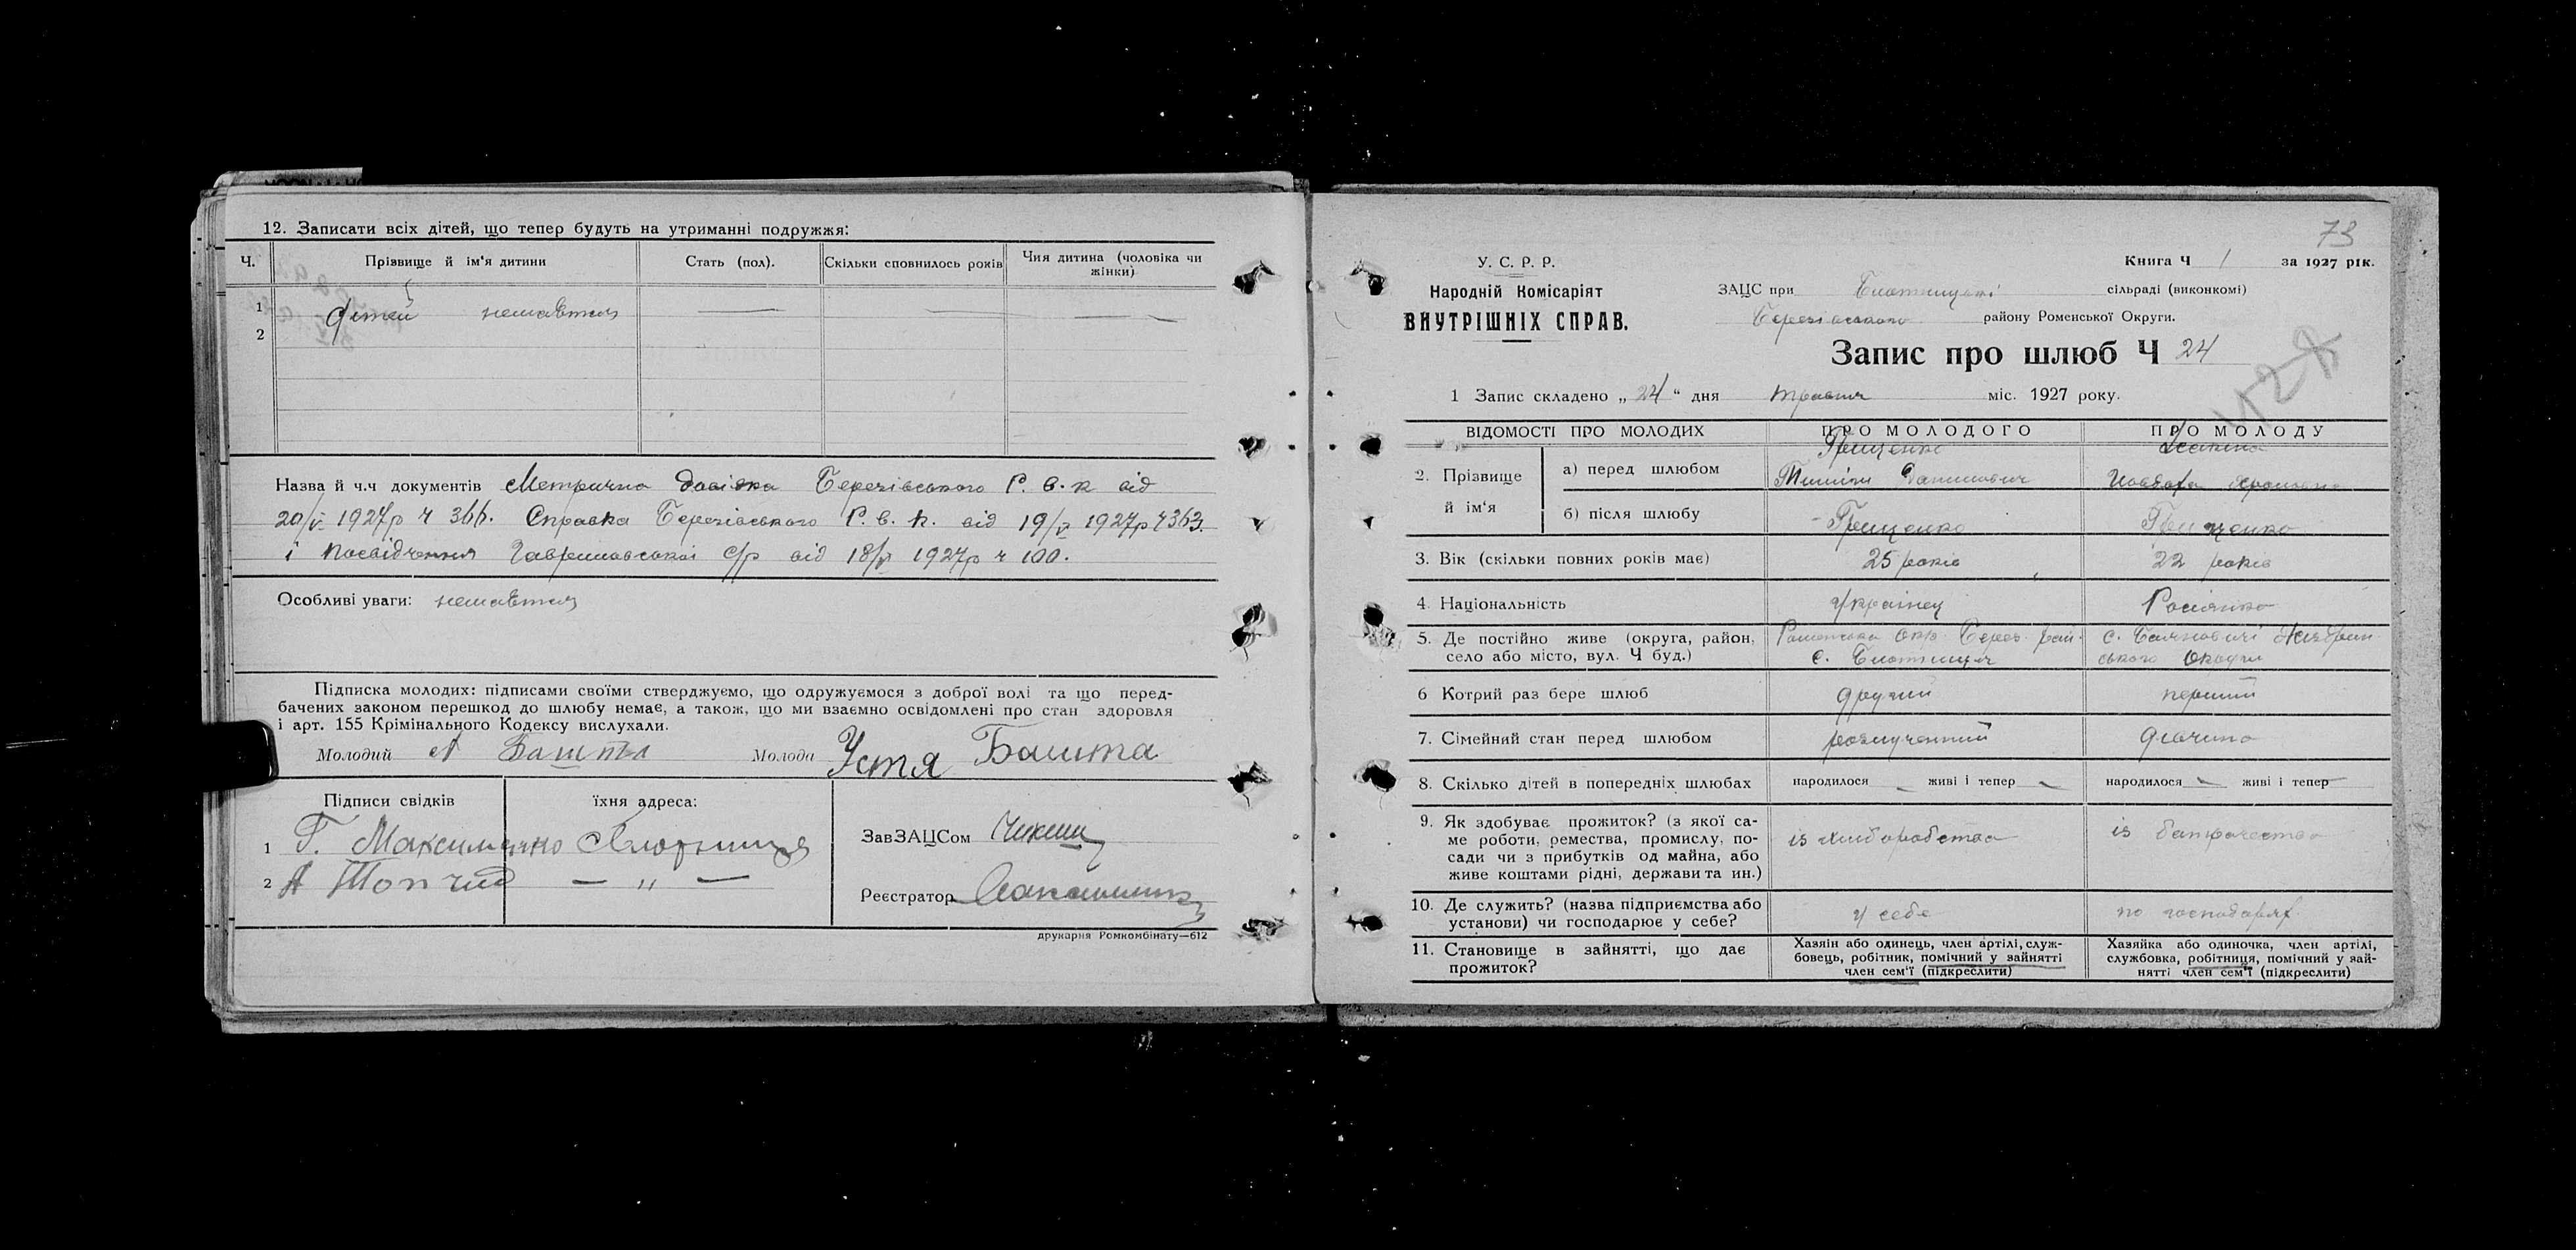 12. Записати всіх дітей, що тепер будуть на утриманні подружжя:
Ч. Прізвище й ім'я дитини Стать (пол). Скільки сповнилось років Чия дитина (чоловіка чи жінки)
1 дітей немається — — — —
2
Назва й ч.ч документів Метрична довідка Березівського Р. в. к від
20/V 1927р ч 366. Справка Березівського Р. в. к. від 19/V 1927р ч 363
і посвідчення с/р від 18/V 1927р ч 100.
Особливі уваги: немається
Підписка молодих: підписами своїми стверджуємо, що одружуємося з доброї волі та що перед-
бачених законом перешкод до шлюбу немає, а також, що ми взаємно освідомлені про стан здоровля
і арт. 155 Крімінального Кодексу вислухали.
Молодий А Башта Молода Устя Башта
Підписи свідків їхня адреса:
1 Г. Максименко
2 А Топчий — „ —
ЗавЗАЦСом
Реєстратор
друкарня Ромкомбінату—612
73
У. С. Р. Р.
Народній Комісаріят
ВНУТРІШНІХ СПРАВ.
Книга Ч 1 за 1927 рік.
ЗАЦС при сільраді (виконкомі)
Березівського району Роменської Округи.
Запис про шлюб Ч 24
1 Запис складено „ 24 “ дня травня міс. 1927 року.
ВІДОМОСТІ ПРО МОЛОДИХ ПРО МОЛОДОГО ПРО МОЛОДУ
2. Прізвище й ім'я
а) перед шлюбом Грищенко Данилович
б) після шлюбу Грищенко Грищенко
3. Вік (скільки повних років має) 25 років 22 років
4. Національність Українец Росіянка
5. Де постійно живе (округа, район, Роменська Окр. Берез. рай. с.
село або місто, вул. Ч буд.) с. ського Округи
6 Котрий раз бере шлюб другий перший
7. Сімейний стан перед шлюбом розлученний дівчина
8. Скілько дітей в попередніх шлюбах народилося — живі і тепер — народилося — живі і тепер —
9. Як здобуває прожиток? (з якої са-
ме роботи, ремества, промислу, по-
сади чи з прибутків од майна, або
живе коштами рідні, держави та ин.)
із хліборобства із батрачества
10. Де служить? (назва підприємства або
установи) чи господарює у себе?
у себе по господарях
11. Становище в зайнятті, що дає
прожиток?
Хазяін або одинець, член артілі, служ-
бовець, робітник, помічний у зайнятті
член сем'ї (підкреслити)
Хазяйка або одиночка, член артілі,
службовка, робітниця, помічний у зай-
нятті член сем'ї (підкреслити)